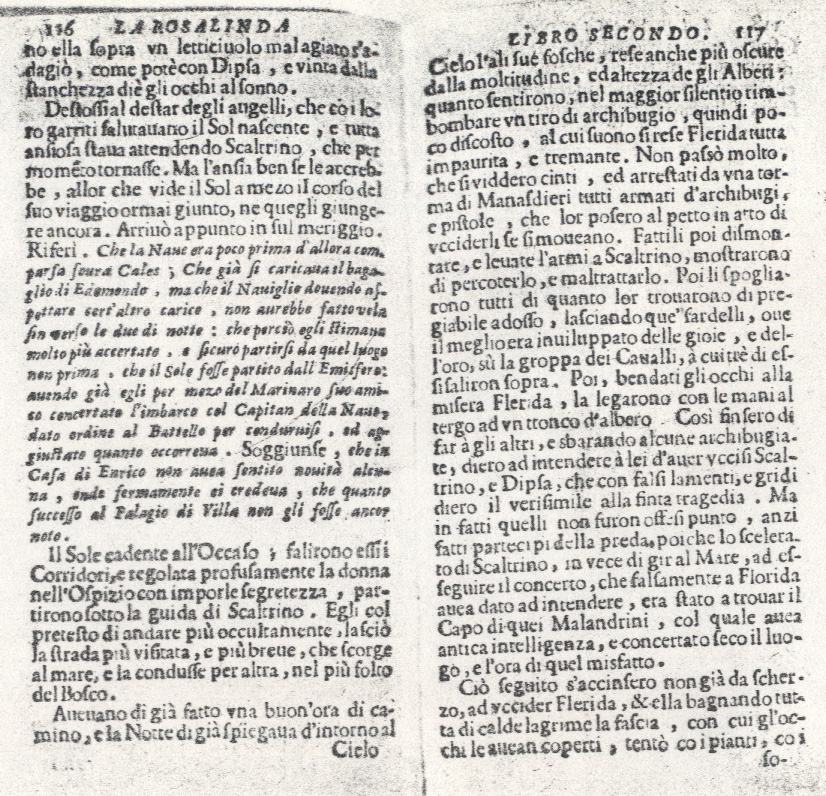 116 LA ROSALINDA
no ella sopra vn letticiuolo mal agiato s'a-
dagiò, come potè con Dipsa, e vinta dalla
stanchezza diè gli occhi al sonno.
Destossi al destar degli augelli, che cō i lo-
ro garriti salutauano il Sol nascente, e tutta
ansiosa staua attendendo Scaltrino, che per
momēto tornasse. Ma l'ansia ben se le accreb-
be, allor che vide il Sol a mezo il corso del
suo viaggio ormai giunto, ne quegli giunge-
re ancora. Arriuò appunto in sul meriggio.
Riferì. Che la Naue era poco prima d'allora com-
parsa soura Cales; Che già si caricaua il baga-
glio di Edemondo, ma che il Nauiglio douendo as-
pettare cert'altro carico, non aurebbe fatto vela
sin verso le due di notte: che perciò egli stimaua
molto più accertato, e sicuro partirsi da quel luogo
non prima, che il Sole fosse partito dall'Emisfero:
auendo già egli per mezo del Marinaro suo ami-
co concertato l'imbarco col Capitan della Naue,
dato ordine al Battello per condursi, ed ag-
giustato quanto occorreua. Soggiunse, che in
Casa di Enrico non auea sentito nouità alcu-
na, onde fermamente ei credeua, che quanto
successo al Palagio di Villa non gli fosse ancor
noto.
Il Sole cadente all'Occaso; salirono essi i
Corridori, e regolata profusamente la donna
nell'Ospizio con imporle segretezza, par-
tirono sotto la guida di Scaltrino. Egli col
pretesto di andare più occultamente, lasciò
la strada più visitata, e più breue, che scorge
al mare, e la condusse per altra, nel più folto
del Bosco.
Aueuano di già fatto vna buon'ora di ca-
mino, e la Notte di già spiegaua d'intorno al
Cielo
LIBRO SECONDO. 117
Cielo l'ali sue fosche, rese anche più oscure
dalla moltitudine, ed altezza de gli Alberi:
quanto sentirono, nel maggior silentio rim-
bombare vn tiro di archibugio, quindi po-
co discosto, al cui suono si rese Flerida tutta
impaurita, e tremante. Non passò molto,
che si viddero cinti, ed arrestati da vna tor-
ma di Manasdieri tutti armati d'archibugi,
e pistole, che lor posero al petto in atto di
vcciderli se si moueano. Fattili poi dismon-
tare, e leuate l'armi a Scaltrino, mostrarono
di percoterlo, e maltrattarlo. Poi li spoglia-
rono tutti di quanto lor trouarono di pre-
giabile adosso, lasciando que' fardelli, oue
il meglio era inuiluppato delle gioie, e del-
l'oro, sù la groppa dei Caualli, à cui trè di es-
si saliron sopra. Poi, bendati gli occhi alla
misera Flerida, la legarono con le mani al
tergo ad vn tronco d'albero Così finsero di
far à gli altri, e sbarando alcune archibugia-
te, diero ad intendere à lei d'auer vccisi Scal-
trino, e Dipsa, che con falsi lamenti, e gridi
diero il verisimile alla finta tragedia. Ma
in fatti quelli non furon offesi punto, anzi
fatti partecipi della preda, poiche lo scelera-
to di Scaltrino, in vece di gir al Mare, ad es-
seguire il concerto, che falsamente a Florida
auea dato ad intendere, era stato a trouar il
Capo di quei Malandrini, col quale auea
antica intelligenza, e concertato seco il luo-
go, e l'ora di quel misfatto.
Ciò seguito s'accinsero non già da scher-
zo, ad vccider Flerida, & ella bagnando tut-
ta di calde lagrime la fascia, con cui gl'oc-
chi le auean coperti, tentò co i pianti, co i
so-